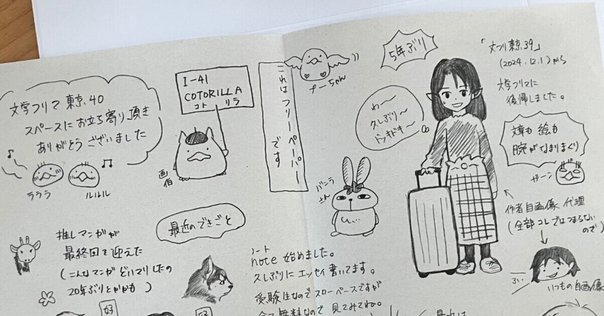 文学フリマ東京.40
スペースにお立ち寄り頂き
ありがとうございました
ラララ
ルルル
I-41
COTORILLA
コト リラ
画伯
これはフリーペーパーです
プーちゃん
5年ぶり
「文フリ東京.39」
(2024.12.1)から
文学フリマに
復帰しました。
わ〜
久しぶり〜
ドッキドキ〜
文章も絵も
腕がなまりまくり
ガーン
作者自画像 代理
(全部コレではつまらない
ので)
いつもの自画像
最近のできごと
推しマンガが
最終回を迎えた
(こんなマンガどハマりしたの
20年ぶりとかかも)
ノート
note 始めました。
久しぶりにエッセイ書いてます。
受験生なのでスローペースですが
無料なので 見てみてね。